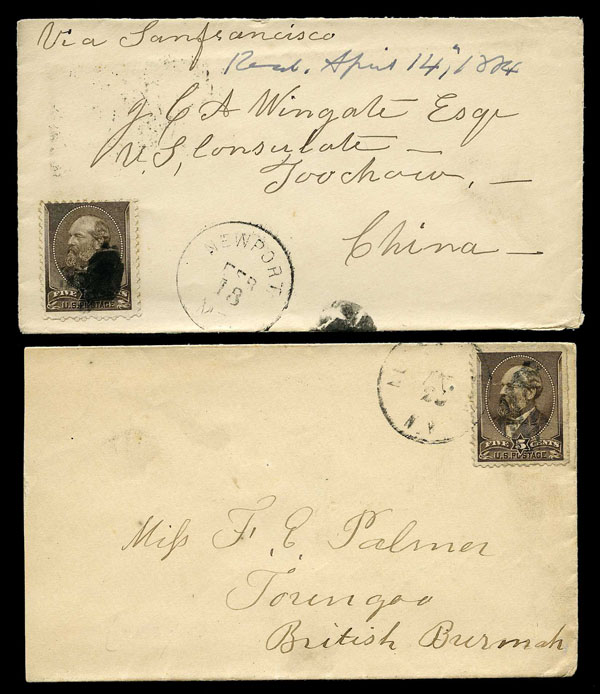 Via Sanfrancisco
Recd. April 14", 1884
J C A Wingate Esqr
U.S. Consulate -
Foochow, -
China -
NEWPORT
FEB
13
FIVE CENTS
U.S. POSTAGE
N.Y
FIVE 5 CENTS
U.S. POSTAGE
Miss F. E. Palmer
Toungoo
British Burmah